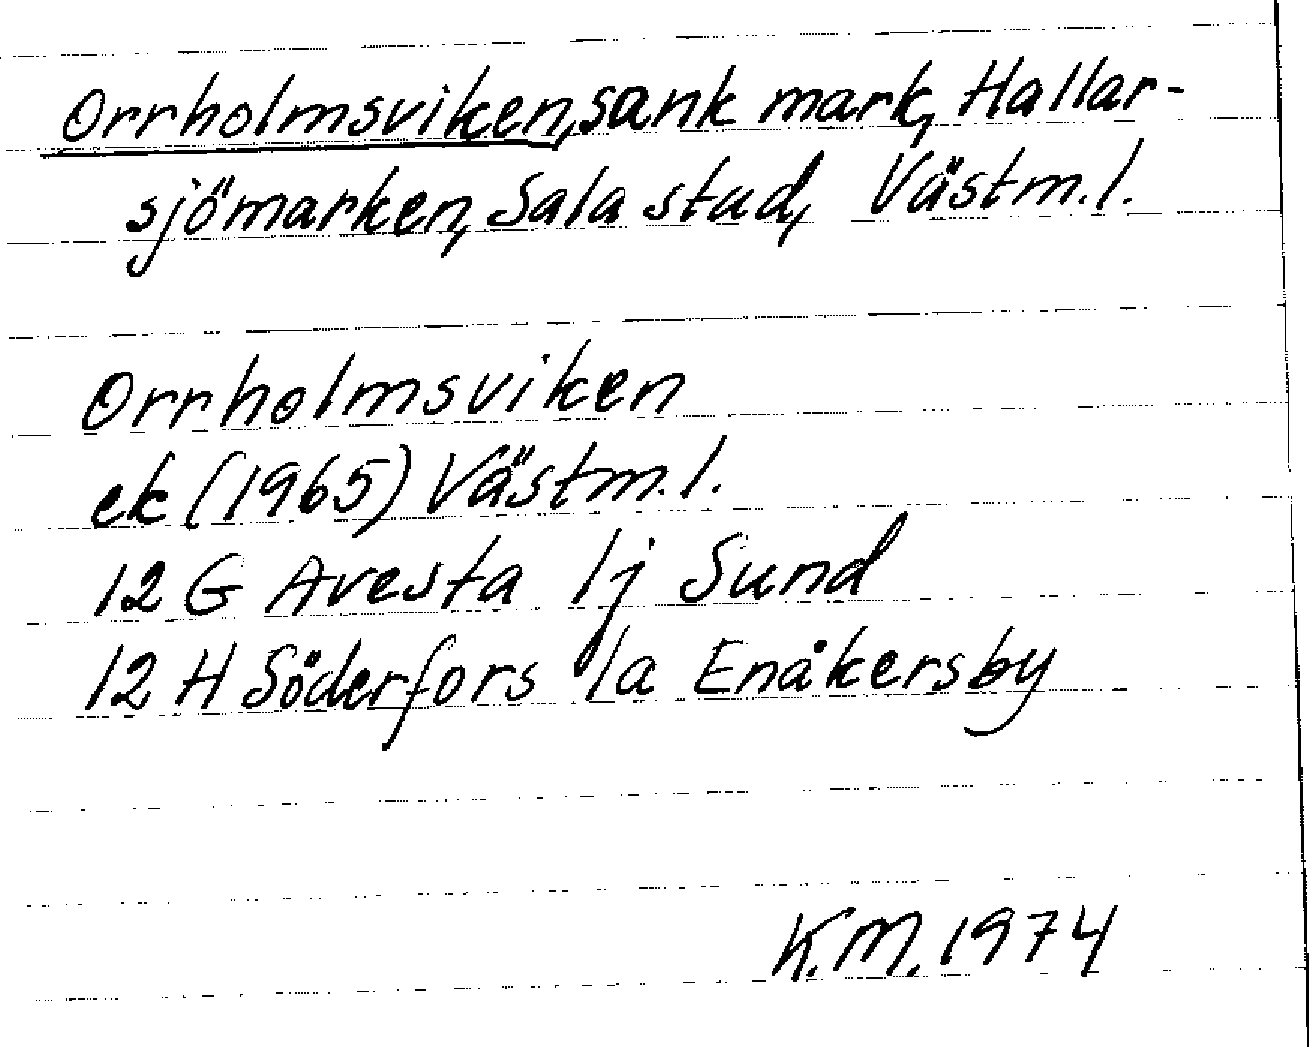 Orrholmsviken, sank mark, Hallar-
sjömarken, Sala stad, Västm.l.
Orrholmsviken
ek (1965) Västm.l.
12 G Avesta 1j Sund
12 H Söderfors 1a Enåkersby
K.M. 1974